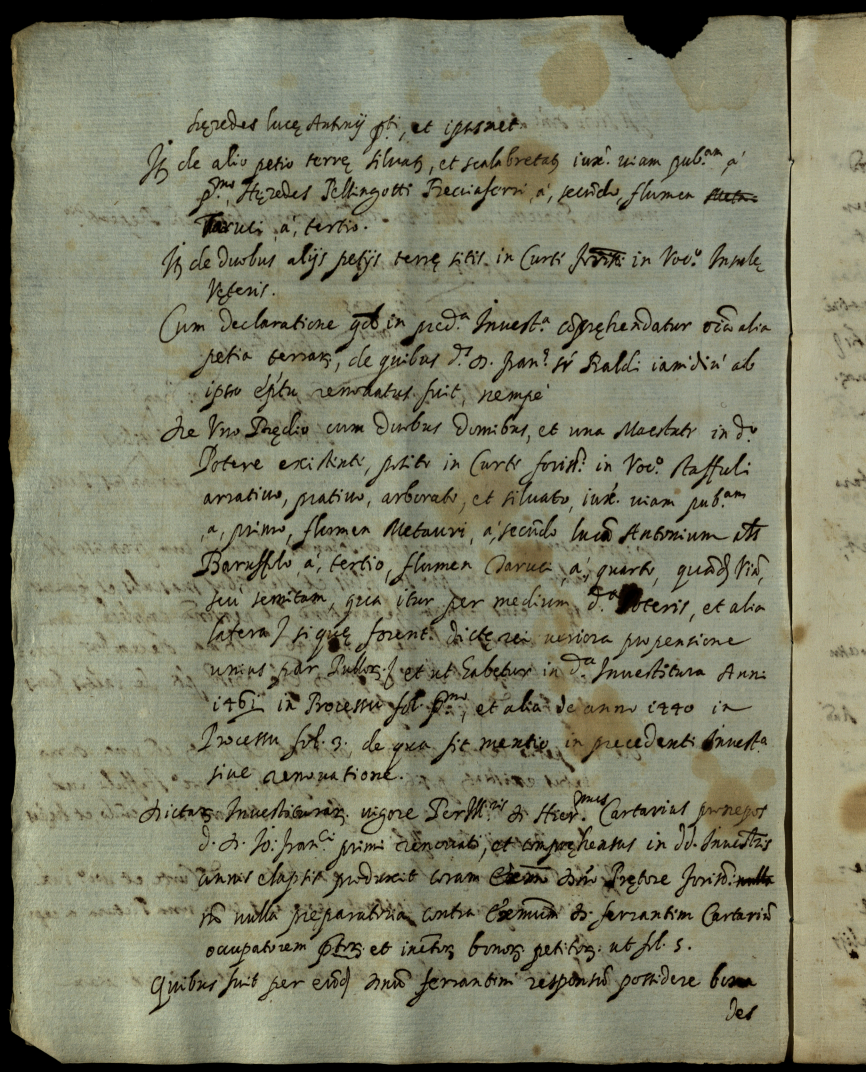 heredes lucę Antonij pti, et ipsomet
Itz de alio petio terrę siluatz, et scalabretatz iux. uiam pub.am à
p.mo, Hęredes Pellingotti à, secũdo, flumen
Taruci à, tertio.
Itz de duobus alijs petijs terrę sitis in Curti in Voc.o Insulę
Vęteris.
Cum declaratione qđ in pred.a Invest.a cõpręhendatur oĩa alia
petia terrarz, de quibus d.s D. Fran.s sr Baldi iamdiu ab
ipso renouatus fuit, nempè
De Vno Prędio cum duobus domibus, et una Maestate in d.o
Potere existenti, posito in Curti forist. in Voc.o Staffuli
arratiuo, pratiuo, arborato, et siluato, iux. uiam pub.am
à, primo, flumen Metauri, à, secũdo lucã Antonium
Baruffolo à, tertio, flumen Taruci, à, quarto, quãdã Viã,
seu semitam, qua itur per medium d.i Poteris, et alia
latera / si quę forent dictę rei ueriora pro pensione
unius par. Pullorz / et ut habetur in d.a Inuestitura Anni
1461 in Processu fol. p.mo, et alia de anno 1440 in
Processu fol. 3. de qua fit mentio in precedenti Inuest.a
siue renouatione.
Dictarz Inuestiturarz uigore Per Ill.ris D. Hier.mus Cartarius pronepos
d. D. Jo: Fran.ci primi renouati, et compręhensus in dd. Inuest.ris
annis elapsis produxit coram Prętore forist.
nulla preparatoria contra Exmum D. ferrantem Cartariũ
occupatorem ptorz et inctorz bonorz petitorz ut fol. 5.
Quibus fuit per eũd ferrantem responsũ possidere bona
des